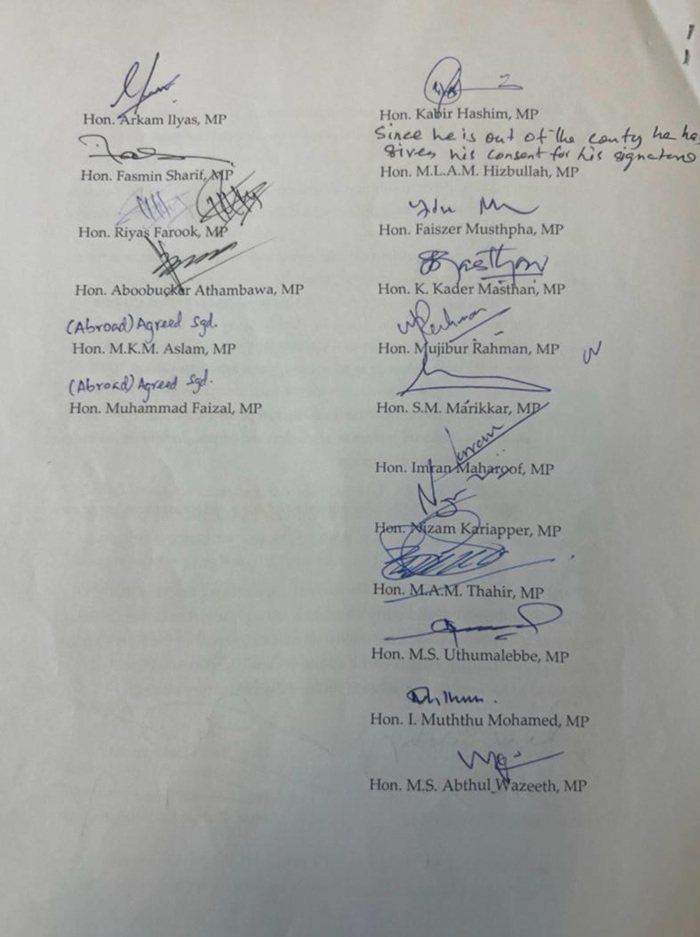 Hon. Arkam Ilyas, MP
Hon. Fasmin Sharif, MP
Hon. Riyas Farook, MP
Hon. Aboobucker Athambawa, MP
(Abroad) Agreed Sgd.
Hon. M.K.M. Aslam, MP
(Abroad) Agreed Sgd.
Hon. Muhammad Faizal, MP
Hon. Kabir Hashim, MP
Since he is out of the couty he ha
given his consent for his signature
Hon. M.L.A.M. Hizbullah, MP
Hon. Faiszer Musthpha, MP
Hon. K. Kader Masthan, MP
Hon. Mujibur Rahman, MP
Hon. S.M. Marikkar, MP
Hon. Imran Maharoof, MP
Hon. Nizam Kariapper, MP
Hon. M.A.M. Thahir, MP
Hon. M.S. Uthumalebbe, MP
Hon. I. Muththu Mohamed, MP
Hon. M.S. Abthul Wazeeth, MP